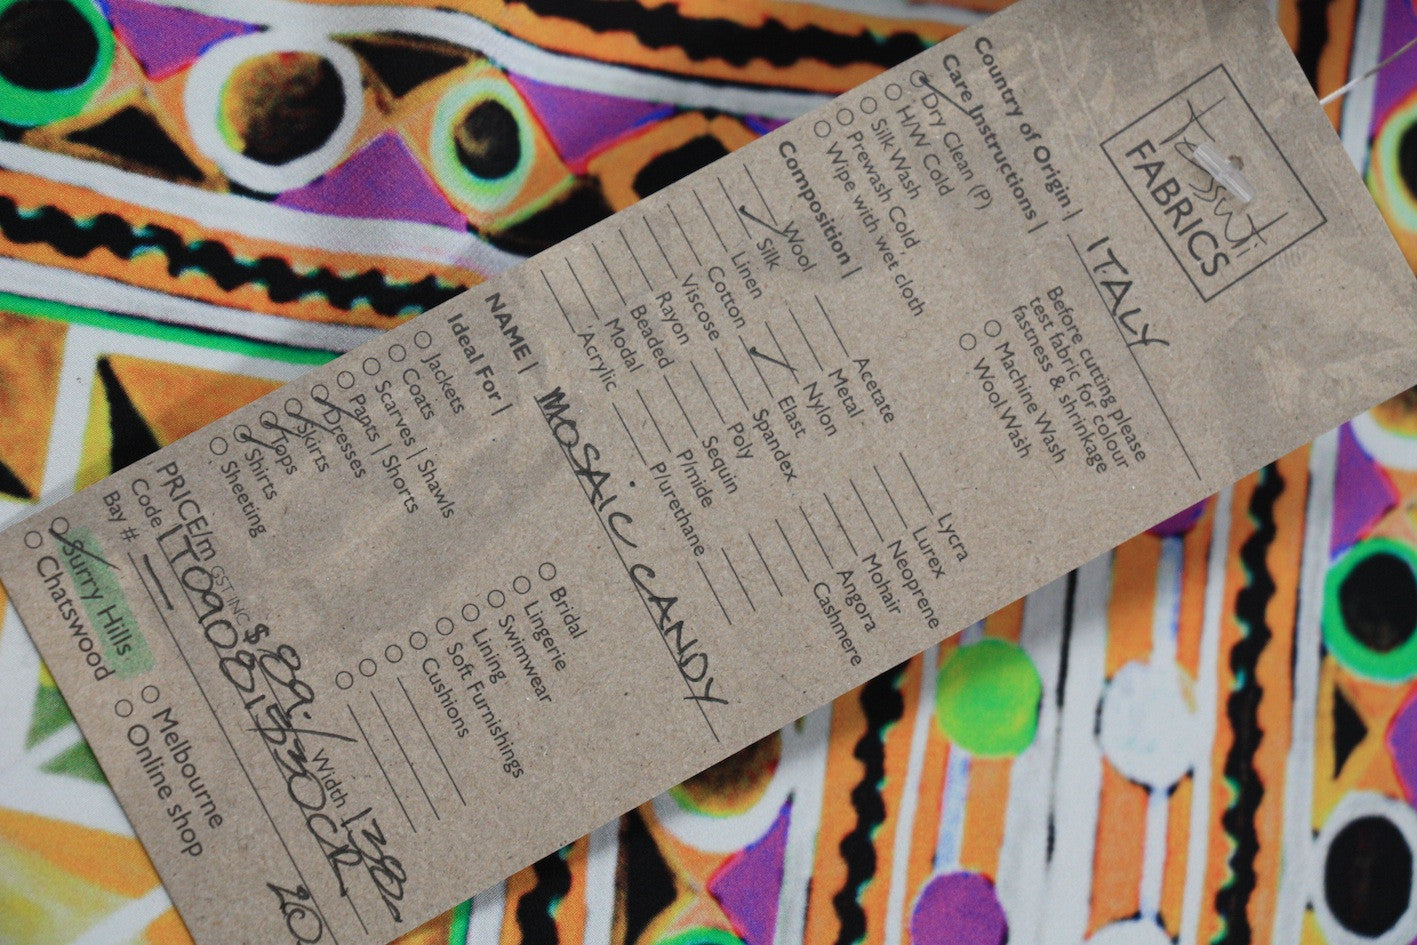 Tessuti
FABRICS
Country of Origin | ITALY
Care Instructions |
Dry Clean (P)
H/W Cold
Silk Wash
Prewash Cold
Wipe with wet cloth
Before cutting please
test fabric for colour
fastness & shrinkage
Machine Wash
Wool Wash
Composition |
Wool
Silk
Linen
Cotton
Viscose
Rayon
Beaded
Modal
Acrylic
Acetate
Metal
Nylon
Elast
Spandex
Poly
Sequin
P/mide
P/urethane
Lycra
Lurex
Neoprene
Mohair
Angora
Cashmere
NAME | MOSAIC CANDY
Ideal For |
Jackets
Coats
Scarves | Shawls
Pants | Shorts
Dresses
Skirts
Tops
Shirts
Sheeting
Bridal
Lingerie
Swimwear
Lining
Soft Furnishings
Cushions
PRICE/m GST INC $ 89. Width 138
Code
Bay #
Surry Hills
Chatswood
Melbourne
Online shop